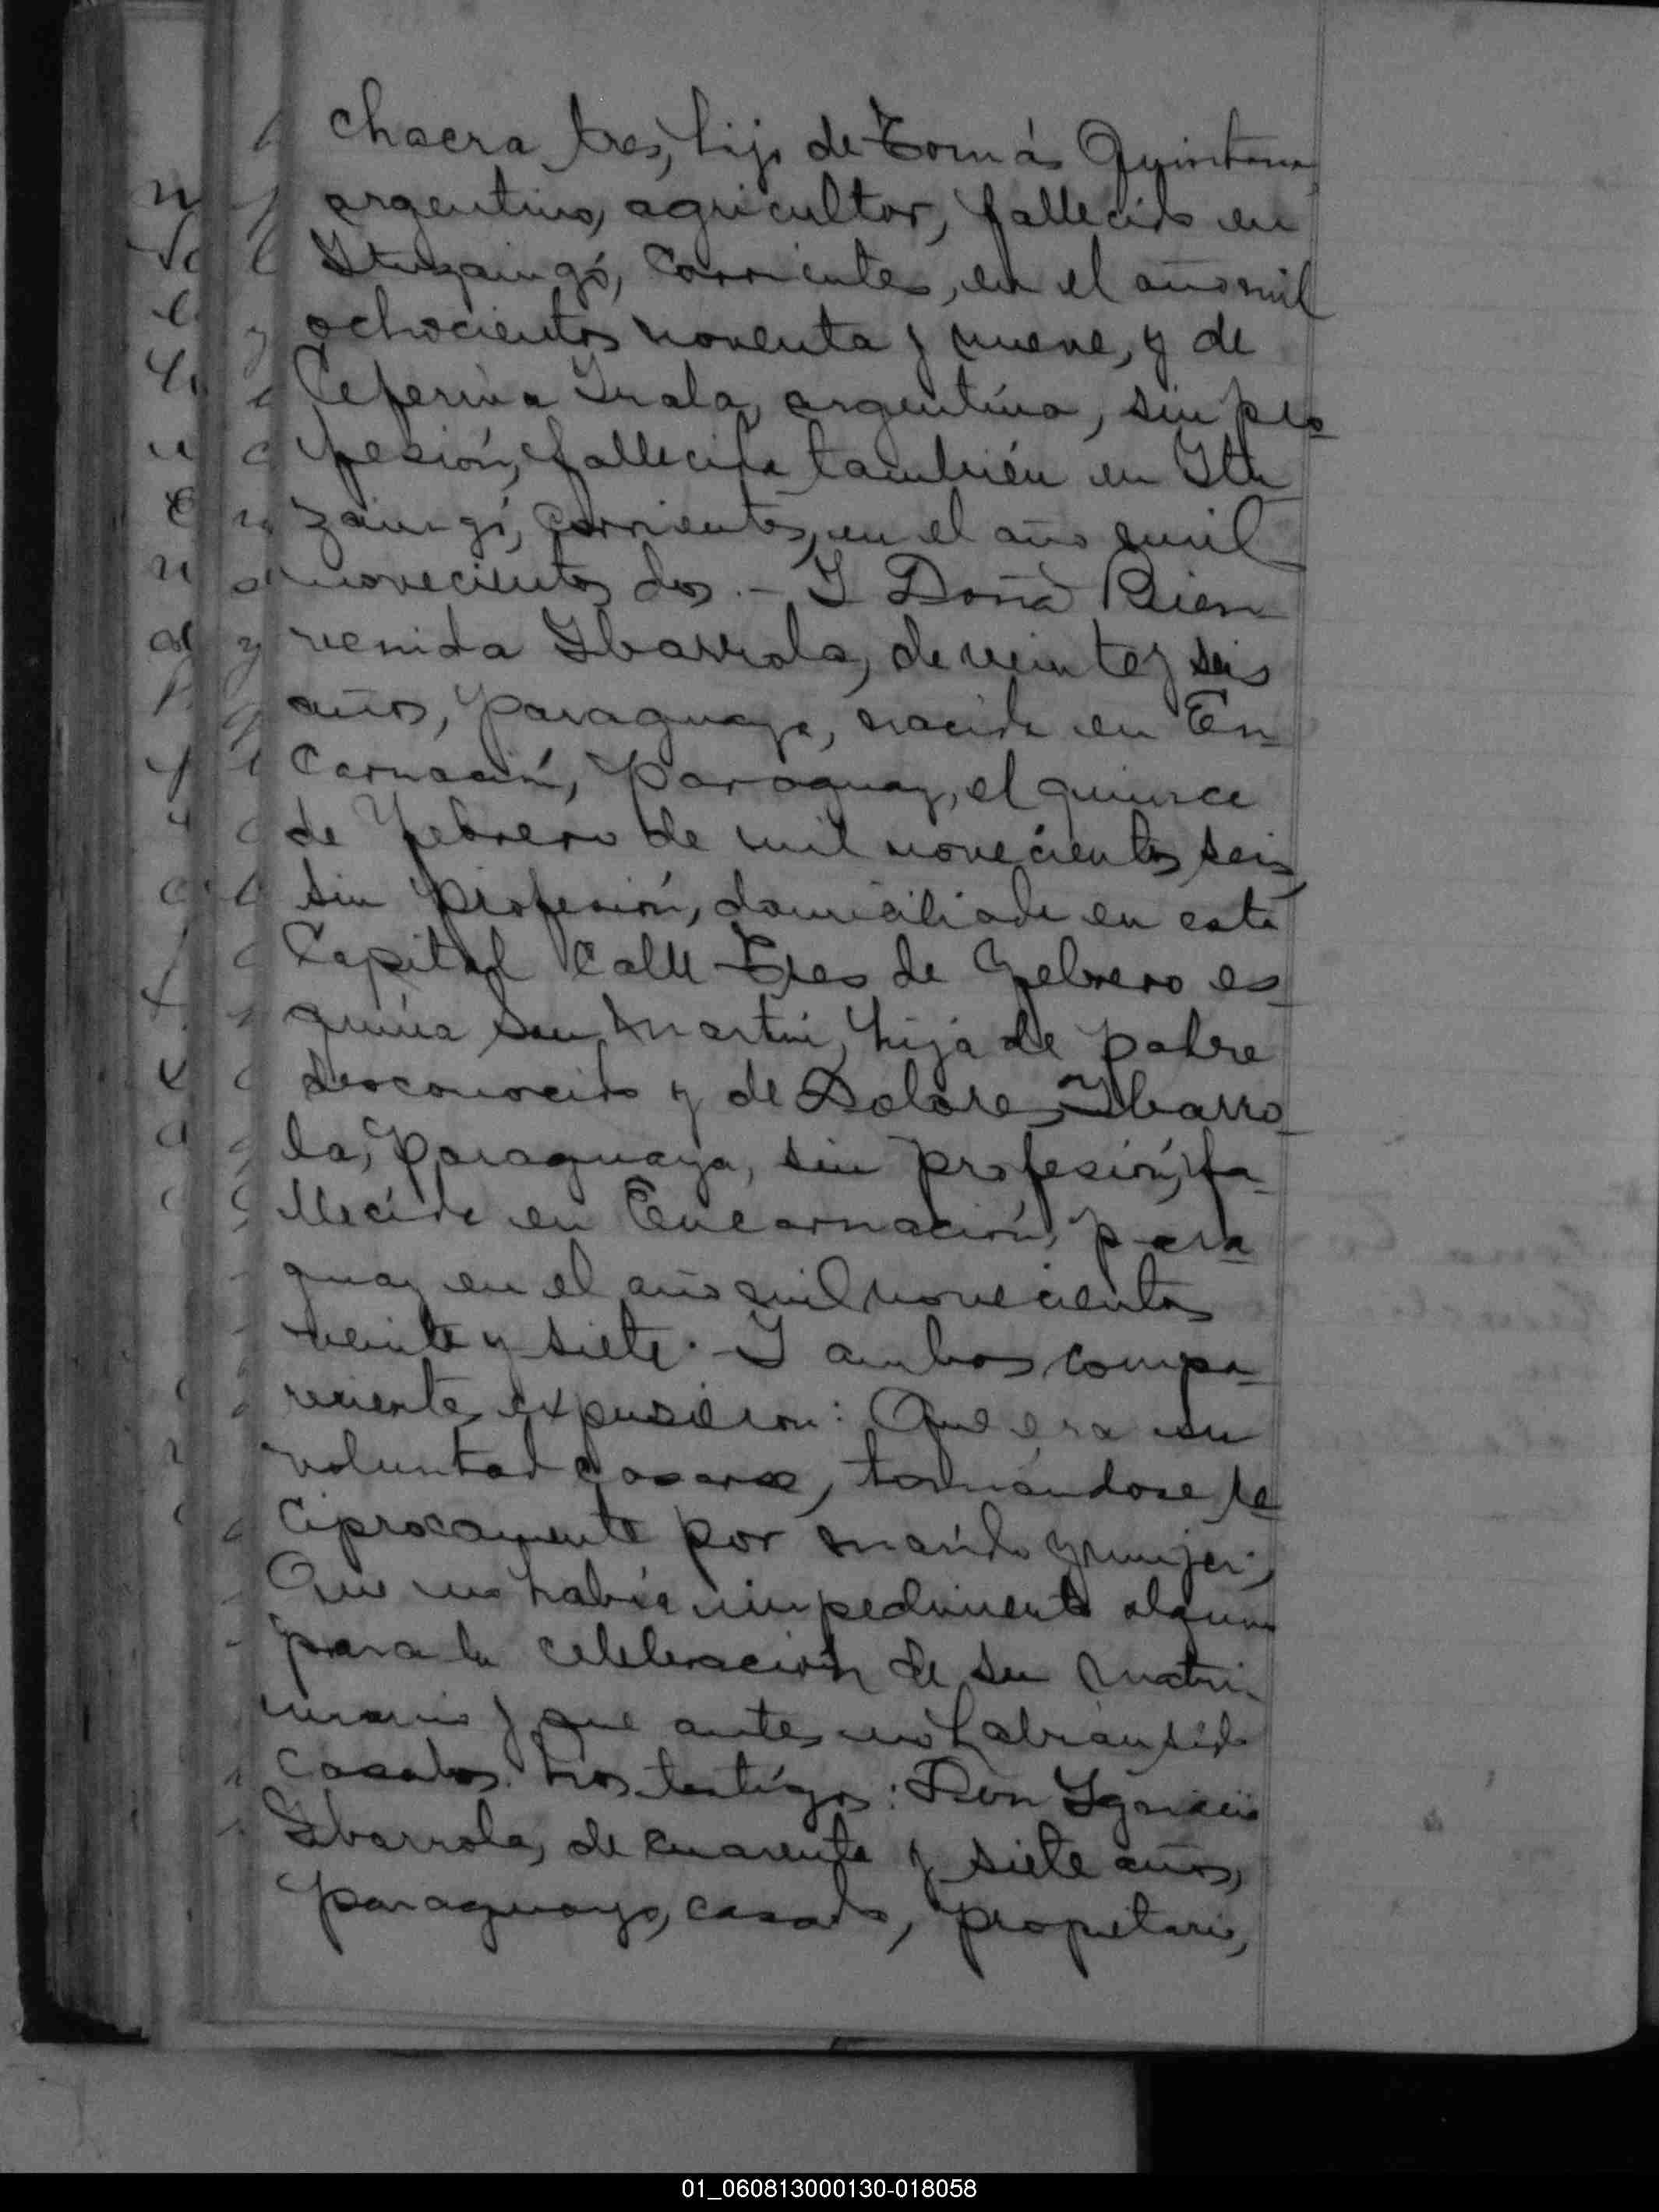 chacra tres, hijo de Tomás Quintana
argentino, agricultor, fallecido en
Ituzaingó, Corrientes, en el año mil
ochocientos noventa y nueve, y de
Ceferina Irala, argentina, sin pro-
fesión, fallecida también en Itu
zaingó, Corrientes, en el año mil
novecientos dos.- Y Doña Bien
venida Ybarrola, de veinte y seis
años, paraguaya, nacida en En-
carnación, Paraguay, el quince
de Febrero de mil novecientos seis,
sin profesión, domiciliada en esta
Capital Calle Tres de Febrero es-
quina San Martín, hija de padre
desconocido y de Dolores Ybarro-
la, paraguaya, sin profesión, fa-
llecida en Encarnación, Para-
guay en el año mil novecientos
veinte y siete.- Y ambos compa-
recientes expusieron: Que era su
voluntad casarse, tomándose re-
ciprocamente por marido y mujer;
Que no había impedimento alguno
para la celebración de su matri-
monio y que antes no habían sido
casados. Los testigos: Don Ygnacio
Ybarrola, de cuarenta y siete años,
paraguayo, casado, propietario,
01_060813000130-018058